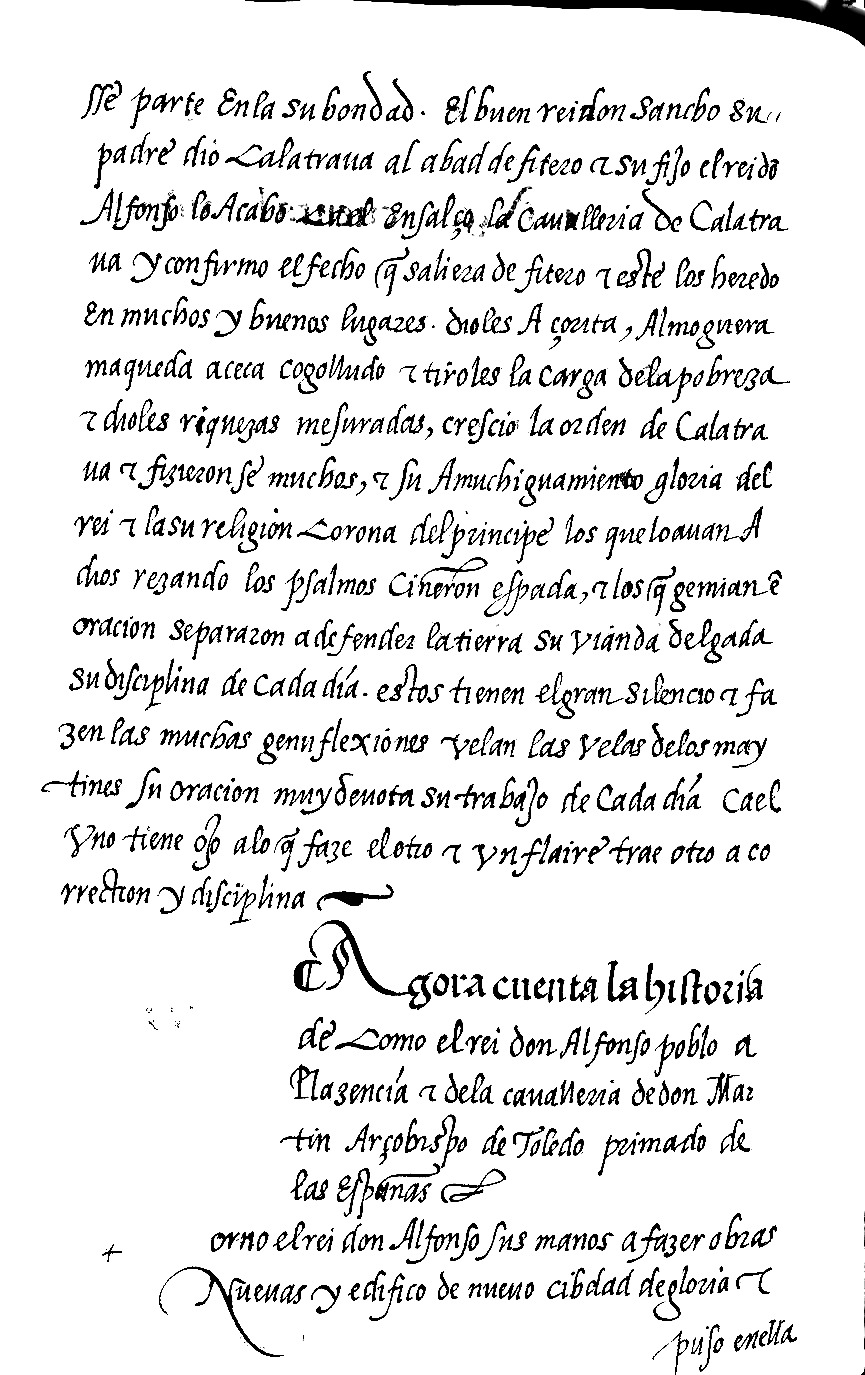 sse parte En la su bondad. El buen rei don Sancho Su
padre dio Calatraua al abad de fitero τ su fijo el rei dō
Alfonso lo Acabo Ensalço la Cavalleria de Calatra
ua y confirmo el fecho q̄ saliera de fitero τ este los heredo
En muchos y buenos lugares. dioles A çorita, Almoguera
maqueda aceca cogolludo τ tiroles la carga dela pobreza
τ dioles riquezas mesuradas, crescio la orden de Calatra
ua τ fizieronse muchos, τ su Amuchiguamiento gloria del
rei τ la su religion Corona del principe los que loauan A
dios rezando los psalmos Cineron espada, τ los q̄ gemian ē
oracion separaron a defender la tierra su vianda delgada
su disciplina de Cada día. estos tienen el gran silencio τ fa
zen las muchas genuflexiones velan las velas delos may
tines su oracion muy deuota su trabajo de Cada día Ca el
vno tiene ojo a lo q̄ faze el otro τ vn flaire trae otro a co
rrection y disciplina
Agora cuenta la historia
de Como el rei don Alfonso poblo a
Plazencía τ dela cavalleria de don Mar
tin Arçobispo de Toledo primado de
las Espanas
orno el rei don Alfonso sus manos a fazer obras
Nuevas y edifico de nuevo cibdad de gloria τ
puso en ella